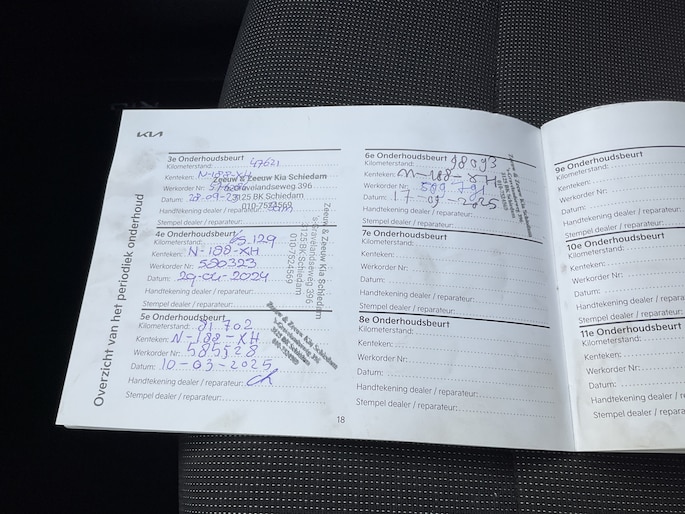 KIA
Overzicht van het periodiek onderhoud
3e Onderhoudsbeurt
Kilometerstand: 47621
Kenteken: N-188-XH
Werkorder Nr:
Datum: 28-09-23
Handtekening dealer / reparateur:
Stempel dealer / reparateur:
Zeeuw & Zeeuw Kia Schiedam
's-Gravelandseweg 396
3125 BK Schiedam
010-7524569
4e Onderhoudsbeurt
Kilometerstand: 65.129
Kenteken: N-188-XH
Werkorder Nr: 580323
Datum: 29-04-2024
Handtekening dealer / reparateur:
Stempel dealer / reparateur:
Zeeuw & Zeeuw Kia Schiedam
's-Gravelandseweg 396
3125 BK Schiedam
010-7524569
5e Onderhoudsbeurt
Kilometerstand: 81702
Kenteken: N-188-XH
Werkorder Nr: 585528
Datum: 10-03-2025
Handtekening dealer / reparateur:
Stempel dealer / reparateur:
Zeeuw & Zeeuw Kia Schiedam
's-Gravelandseweg 396
3125 BK Schiedam
010-7524569
6e Onderhoudsbeurt
Kilometerstand: 98093
Kenteken: N-188-XH
Werkorder Nr:
Datum:
Handtekening dealer / reparateur:
Stempel dealer / reparateur:
Zeeuw & Zeeuw Kia Schiedam
3125 BK Schiedam
7e Onderhoudsbeurt
Kilometerstand:
Kenteken:
Werkorder Nr:
Datum:
Handtekening dealer / reparateur:
Stempel dealer / reparateur:
8e Onderhoudsbeurt
Kilometerstand:
Kenteken:
Werkorder Nr:
Datum:
Handtekening dealer / reparateur:
Stempel dealer / reparateur:
18
9e Onderhoudsbeurt
Kilometerstand:
Kenteken:
Werkorder Nr:
Datum:
Handtekening dealer / repara
Stempel dealer / reparateu
10e Onderhoudsbeurt
Kilometerstand:
Kenteken:
Werkorder Nr:
Datum:
Handtekening dealer / repa
Stempel dealer / reparate
11e Onderhoudsbeurt
Kilometerstand:
Kenteken:
Werkorder Nr:
Datum:
Handtekening dealer / rep
Stempel dealer / repara